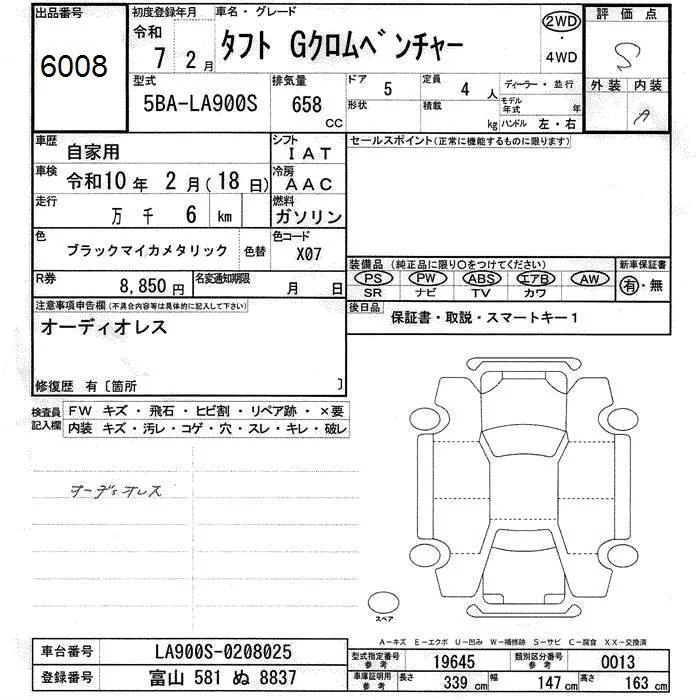 出品番号 初度登録年月 車名・グレード 2WD 評価点
6008 令和 7 2月 タフト Gクロムベンチャー ・ S
4WD
型式 排気量 ドア 5 定員 4人 ディーラー・並行 外装 内装
5BA-LA900S 658 CC 形状 積載 kg モデル年式 年 A
ハンドル 左・右
車歴 自家用 シフト IAT セールスポイント(正常に機能するものに限ります)
車検 令和10年 2月(18日) 冷房 AAC
走行 万 千 6 km 燃料 ガソリン
色 ブラックマイカメタリック 色替 色コード X07
装備品 (純正品に限り○をつけてください) 新車保証書
R券 8,850円 名変通知期限 月 日 PS PW ABS エアB AW 有・無
SR ナビ TV カワ
注意事項申告欄(不具合内容等は具体的に記入して下さい) 後日品 保証書・取説・スマートキー1
オーディオレス
修復歴 有〔箇所 〕
検査員記入欄 FW キズ・飛石・ヒビ割・リペア跡・×要
内装 キズ・汚レ・コゲ・穴・スレ・キレ・破レ
オーディオレス
スペア
A-キズ E-エクボ U-凹み W-補修跡 S-サビ C-腐食 XX-交換済
車台番号 LA900S-0208025 型式指定番号 参考 19645 類別区分番号 参考 0013
登録番号 富山 581 ぬ 8837 車庫証明用 参考 長さ 339cm 幅 147cm 高さ 163cm